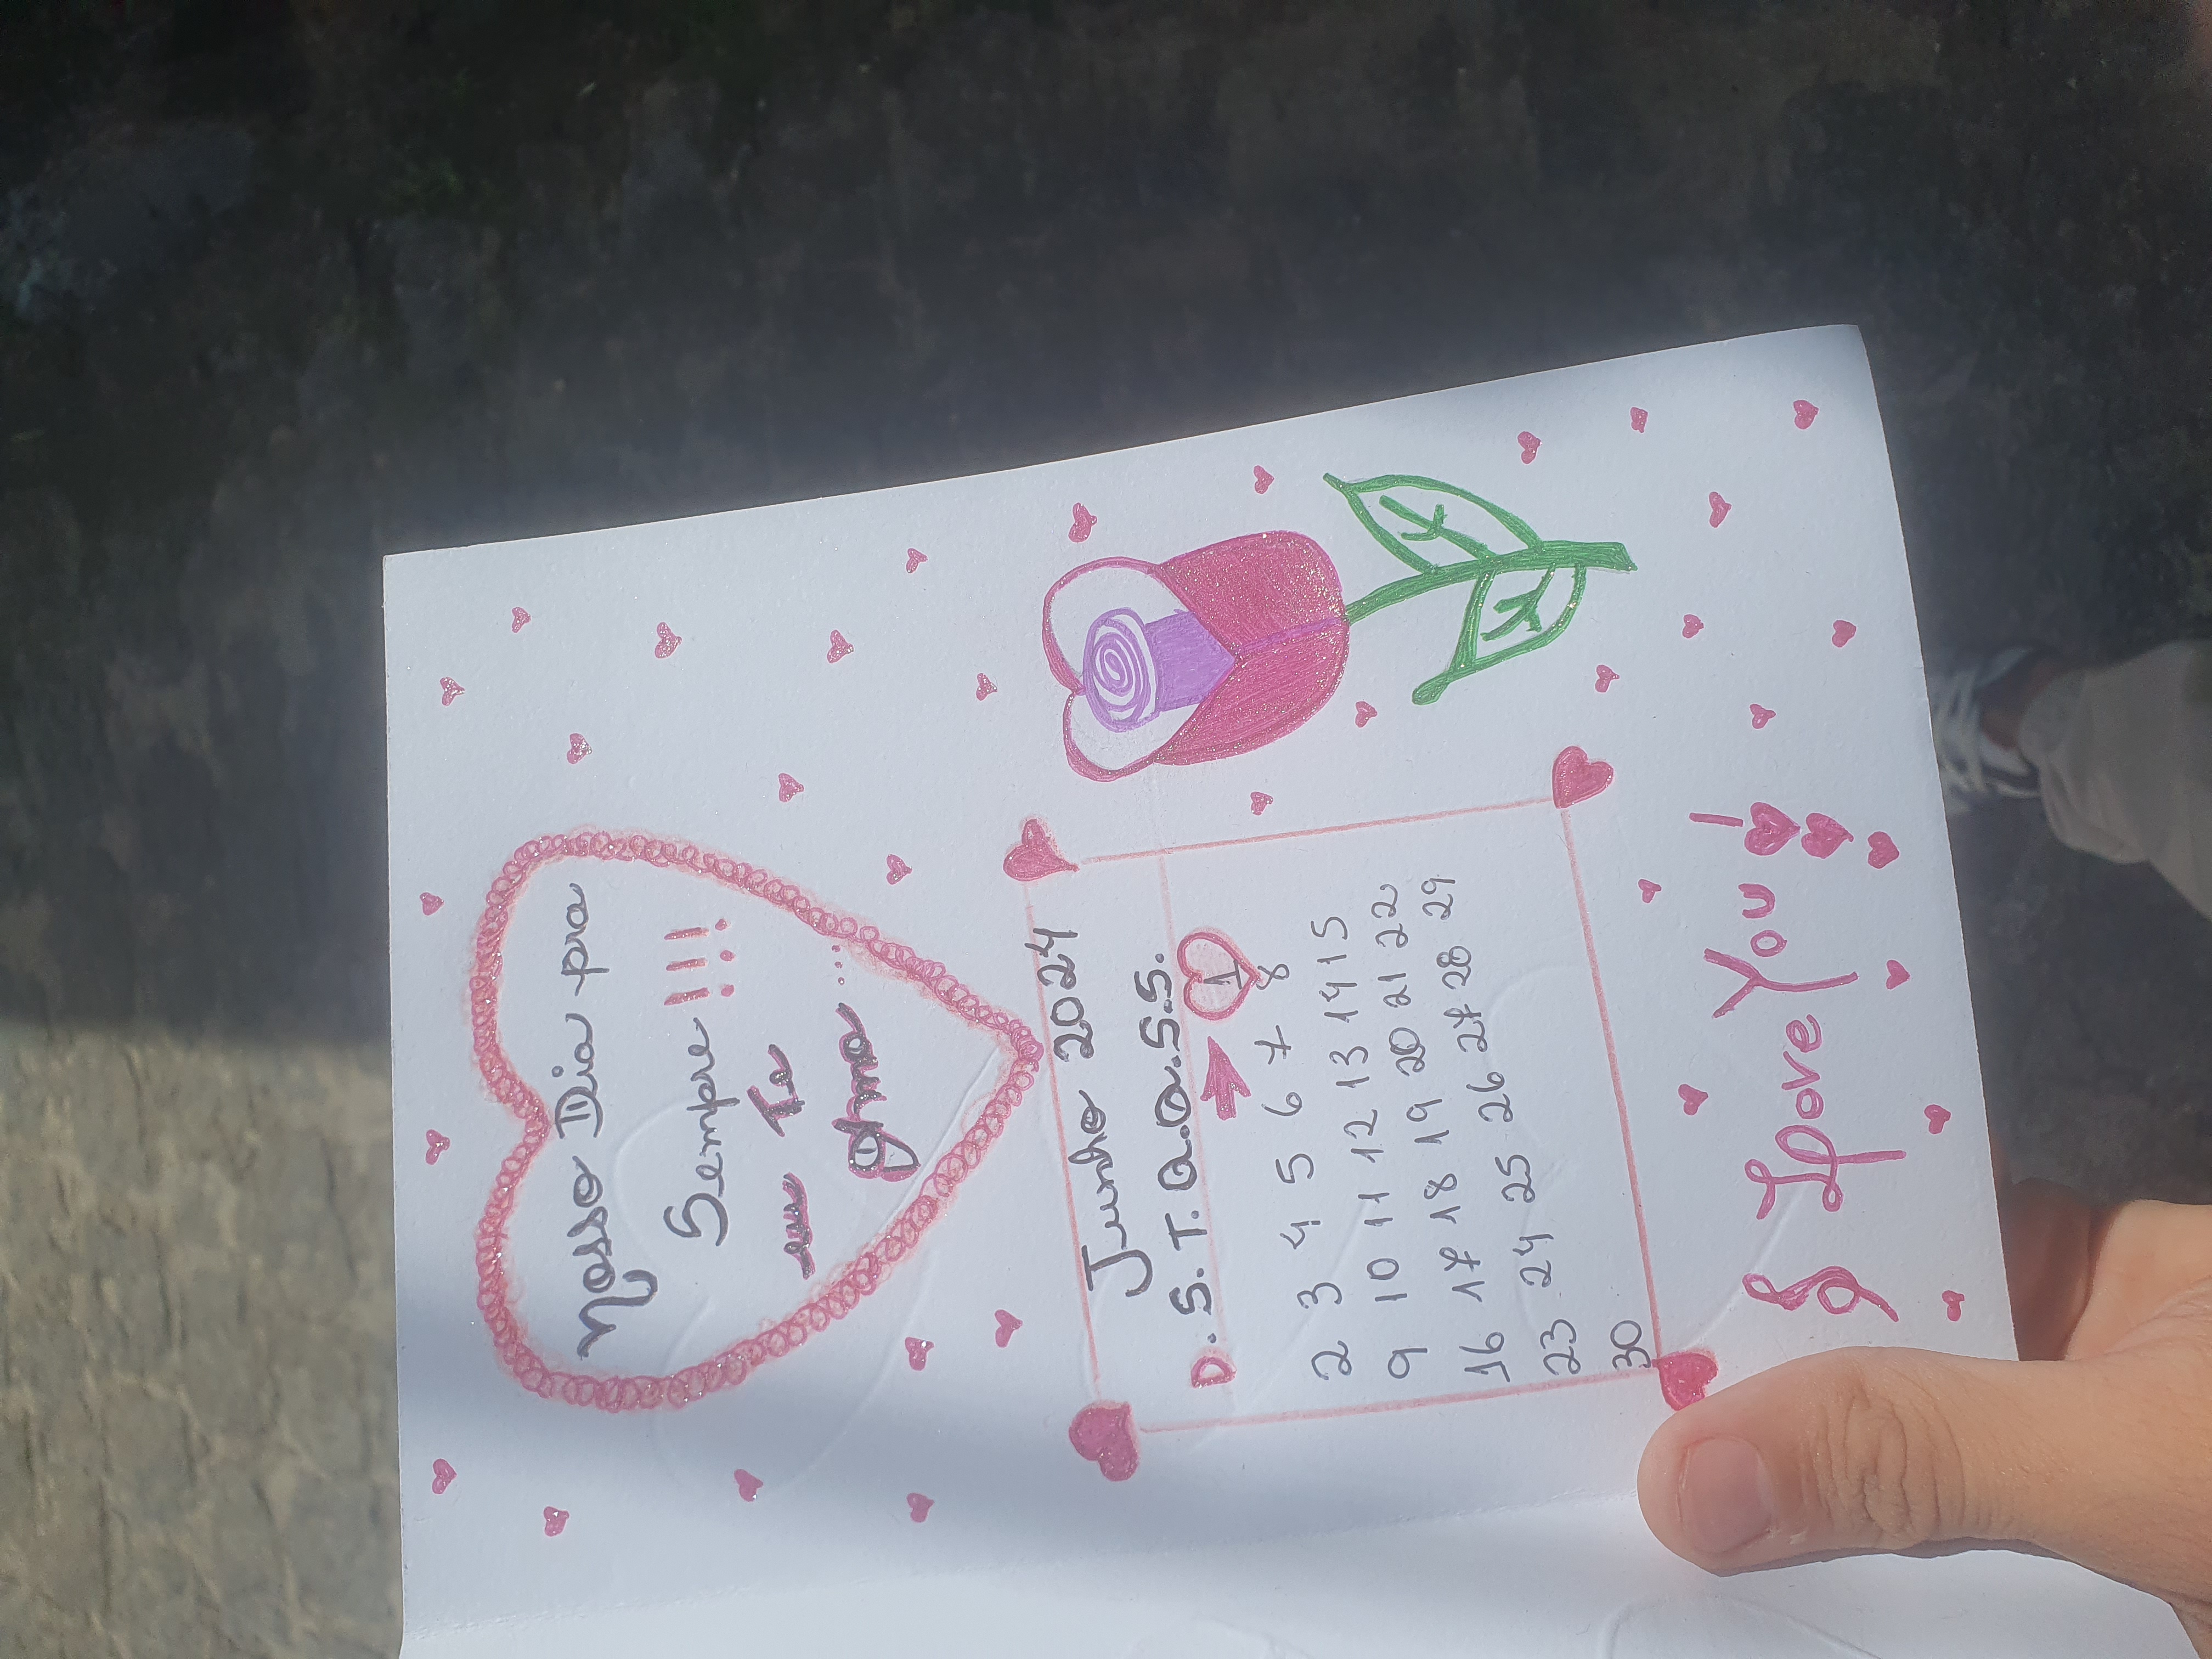 Nosso Dia pra
Sempre!!!
eu Te
Amo...
Junho 2024
D. S. T. Q. Q. S. S.
1
2 3 4 5 6 7 8
9 10 11 12 13 14 15
16 17 18 19 20 21 22
23 24 25 26 27 28 29
30
I Love You!